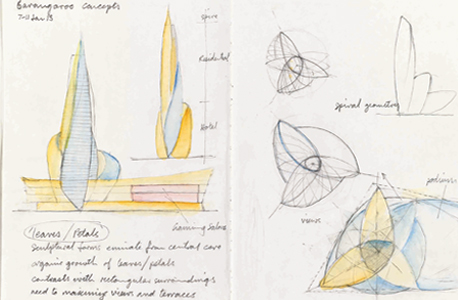 Barangaroo concepts
7-10 Jan 13
spire
Residential
Hotel
Gaming Salons
Leaves / Petals
sculptural forms emanate from central core
organic growth of leaves/petals
contrasts with rectangular surroundings
need to maximise views and terraces
spiral geometry
views
podium